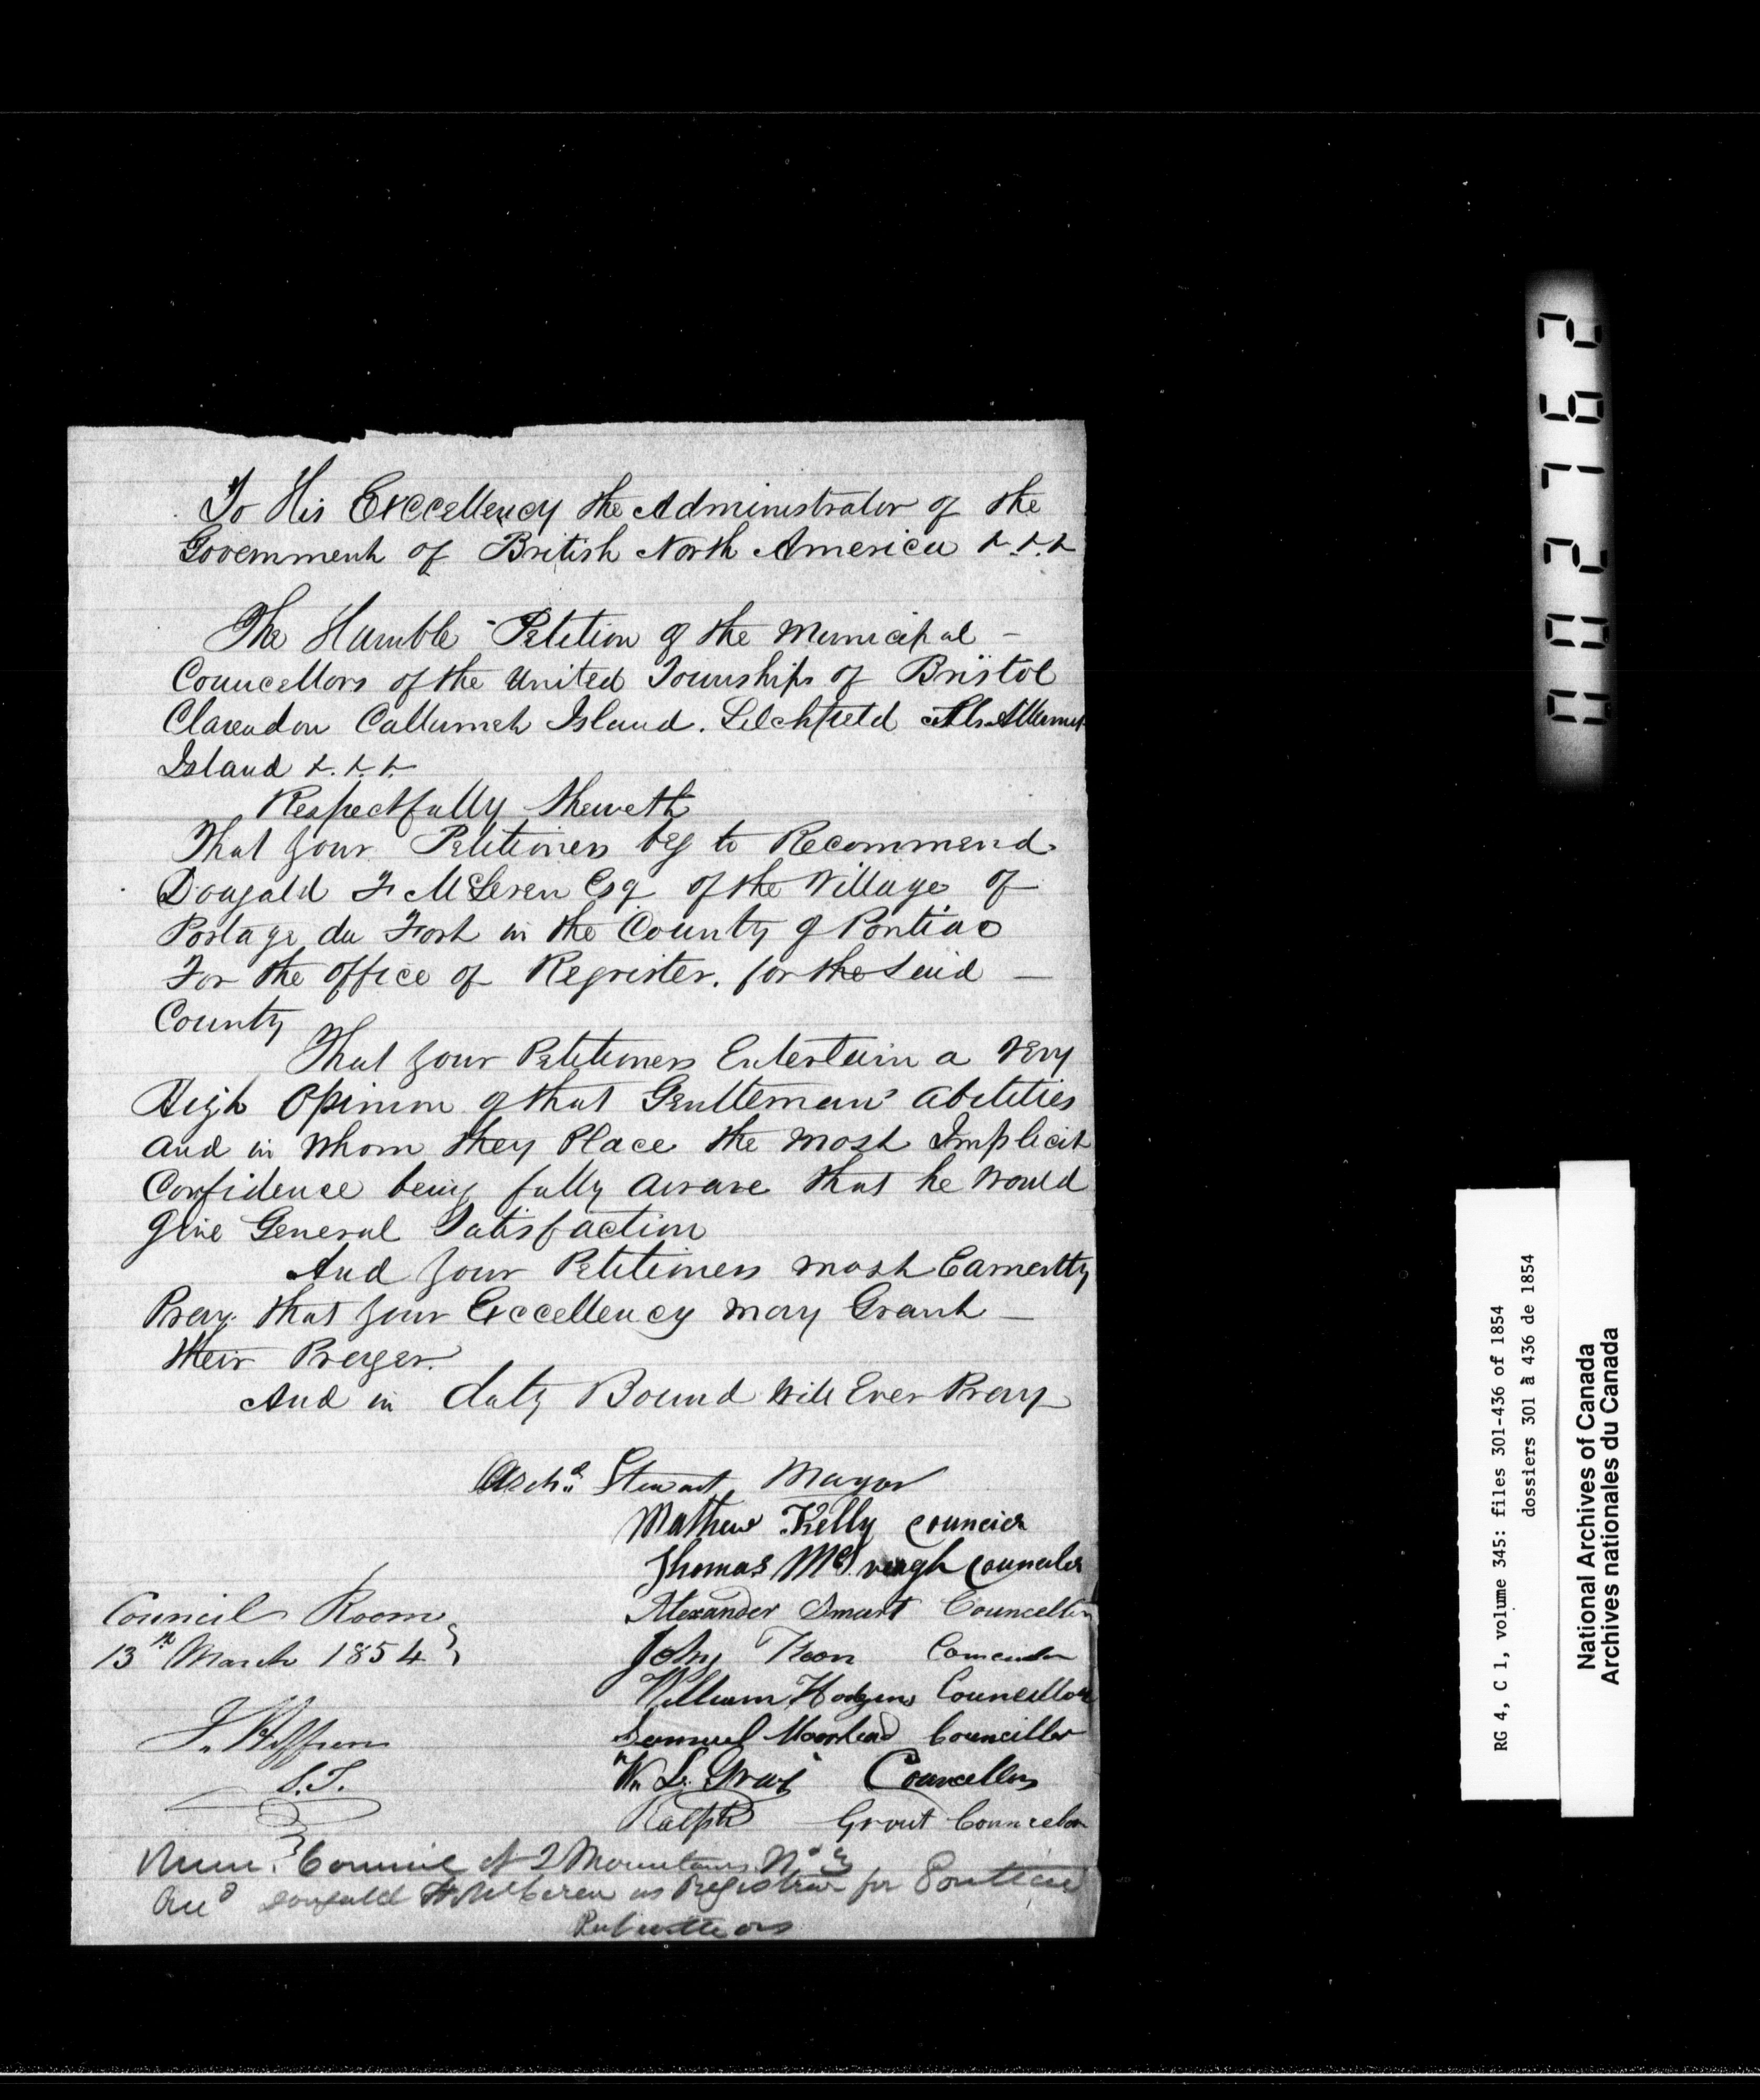 To His Exccellency the Administrator of the
Government of British North America &.&.&
The Humble Petition of the Municipal —
Councellors of the United Townships of Bristol
Clarendon Callumeh Island. Litchfield
Island &.&.&.
Respectfully Sheweth
That your Petitioners beg to Recommend
Dougald F McLeren Esq of the Village of
Portage du Fort in the County of Pontiac
For the office of Register. for the Said —
County
That your Petitioners Entertain a very
High Opinion of that Gentleman's abilities
and in Whom they Place the most Implicit
Confidence being fully aware that he Would
give General Satisfaction
And your Petitioners most Earnestly
Pray that your Exccellency may Grant —
their Prayer.
And in duty Bound Will Ever Pray
Archd. Stewart, Mayor
Mathew Kelly
Thomas
Alexander Smart Councellor
John
William Hodgins Councillor
Samuel Moorhead Councillor
Wm Councellor
Ralph Grout Councelor
Council Room
13th March 1854
S.T.
Mun. Council of 2 Mountains No 3
Dougald McLeren as Registrar for Pontiac
0 0 2 7 6 2
RG 4, C 1, volume 345: files 301-436 of 1854
dossiers 301 à 436 de 1854
National Archives of Canada
Archives nationales du Canada